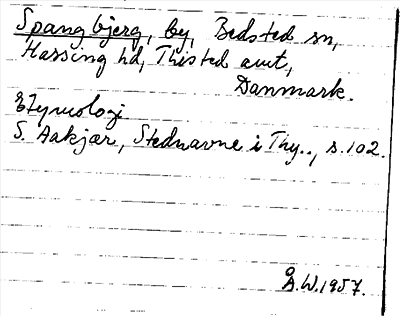 Spangbjerg, by, Bedsted sn,
Hassing hd, Thisted amt,
Danmark.
Etymologi
S. Aakjær, Stednavne i Thy.., s.102.
Å.W.1957.